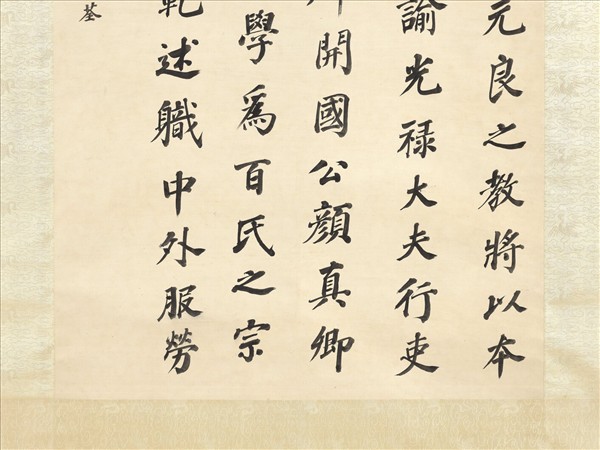 元良之教將以本
諭光祿大夫行吏
開國公顏真卿
學為百氏之宗
述職中外服勞
荃